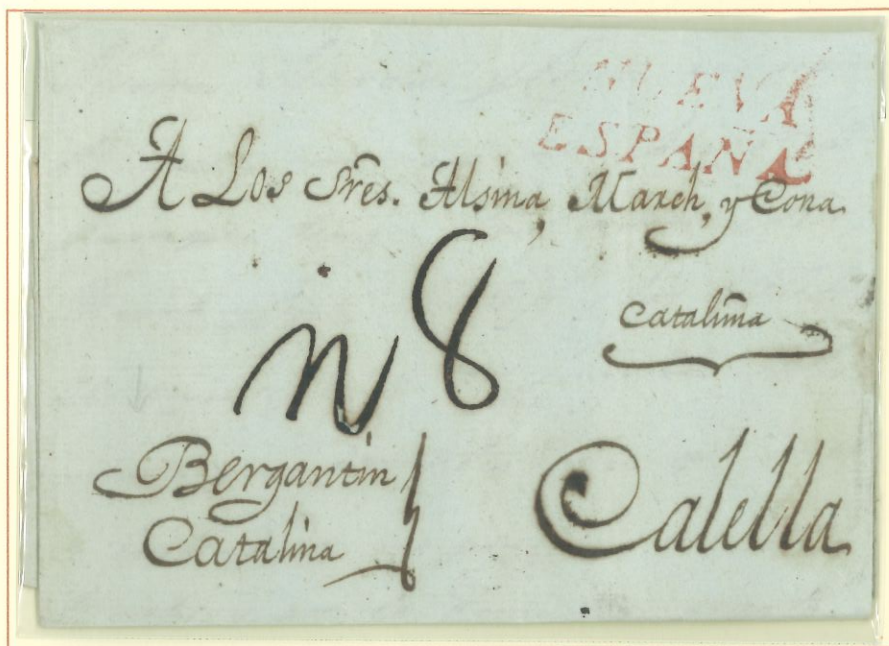 NUEVA
ESPAÑA
A Los Sres. Alsina, March, y Cona
Cataliña
n 8
Bergantin
Catalina
Calella